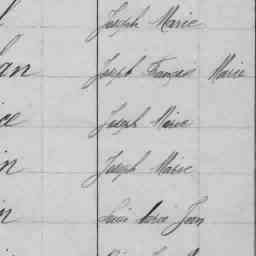 Joseph Marie
an Joseph François Marie
ce Joseph Marie
in Joseph Marie
in Louis Marie Jean